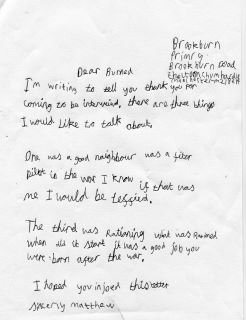 Brookburn
Primry
Brookburn road
Dear Burned
I'm writing to tell you thank you for
coming to be interviwd, there are three things
I would like to talk about.
One was a good neighbour was a fiter
pilot in the war I know if that was
me I would be terrified.
The third was Rationing what was Rasined
when did it start it was a good job you
were born after the war.
I hoped you injoed this letter
sincerly matthew